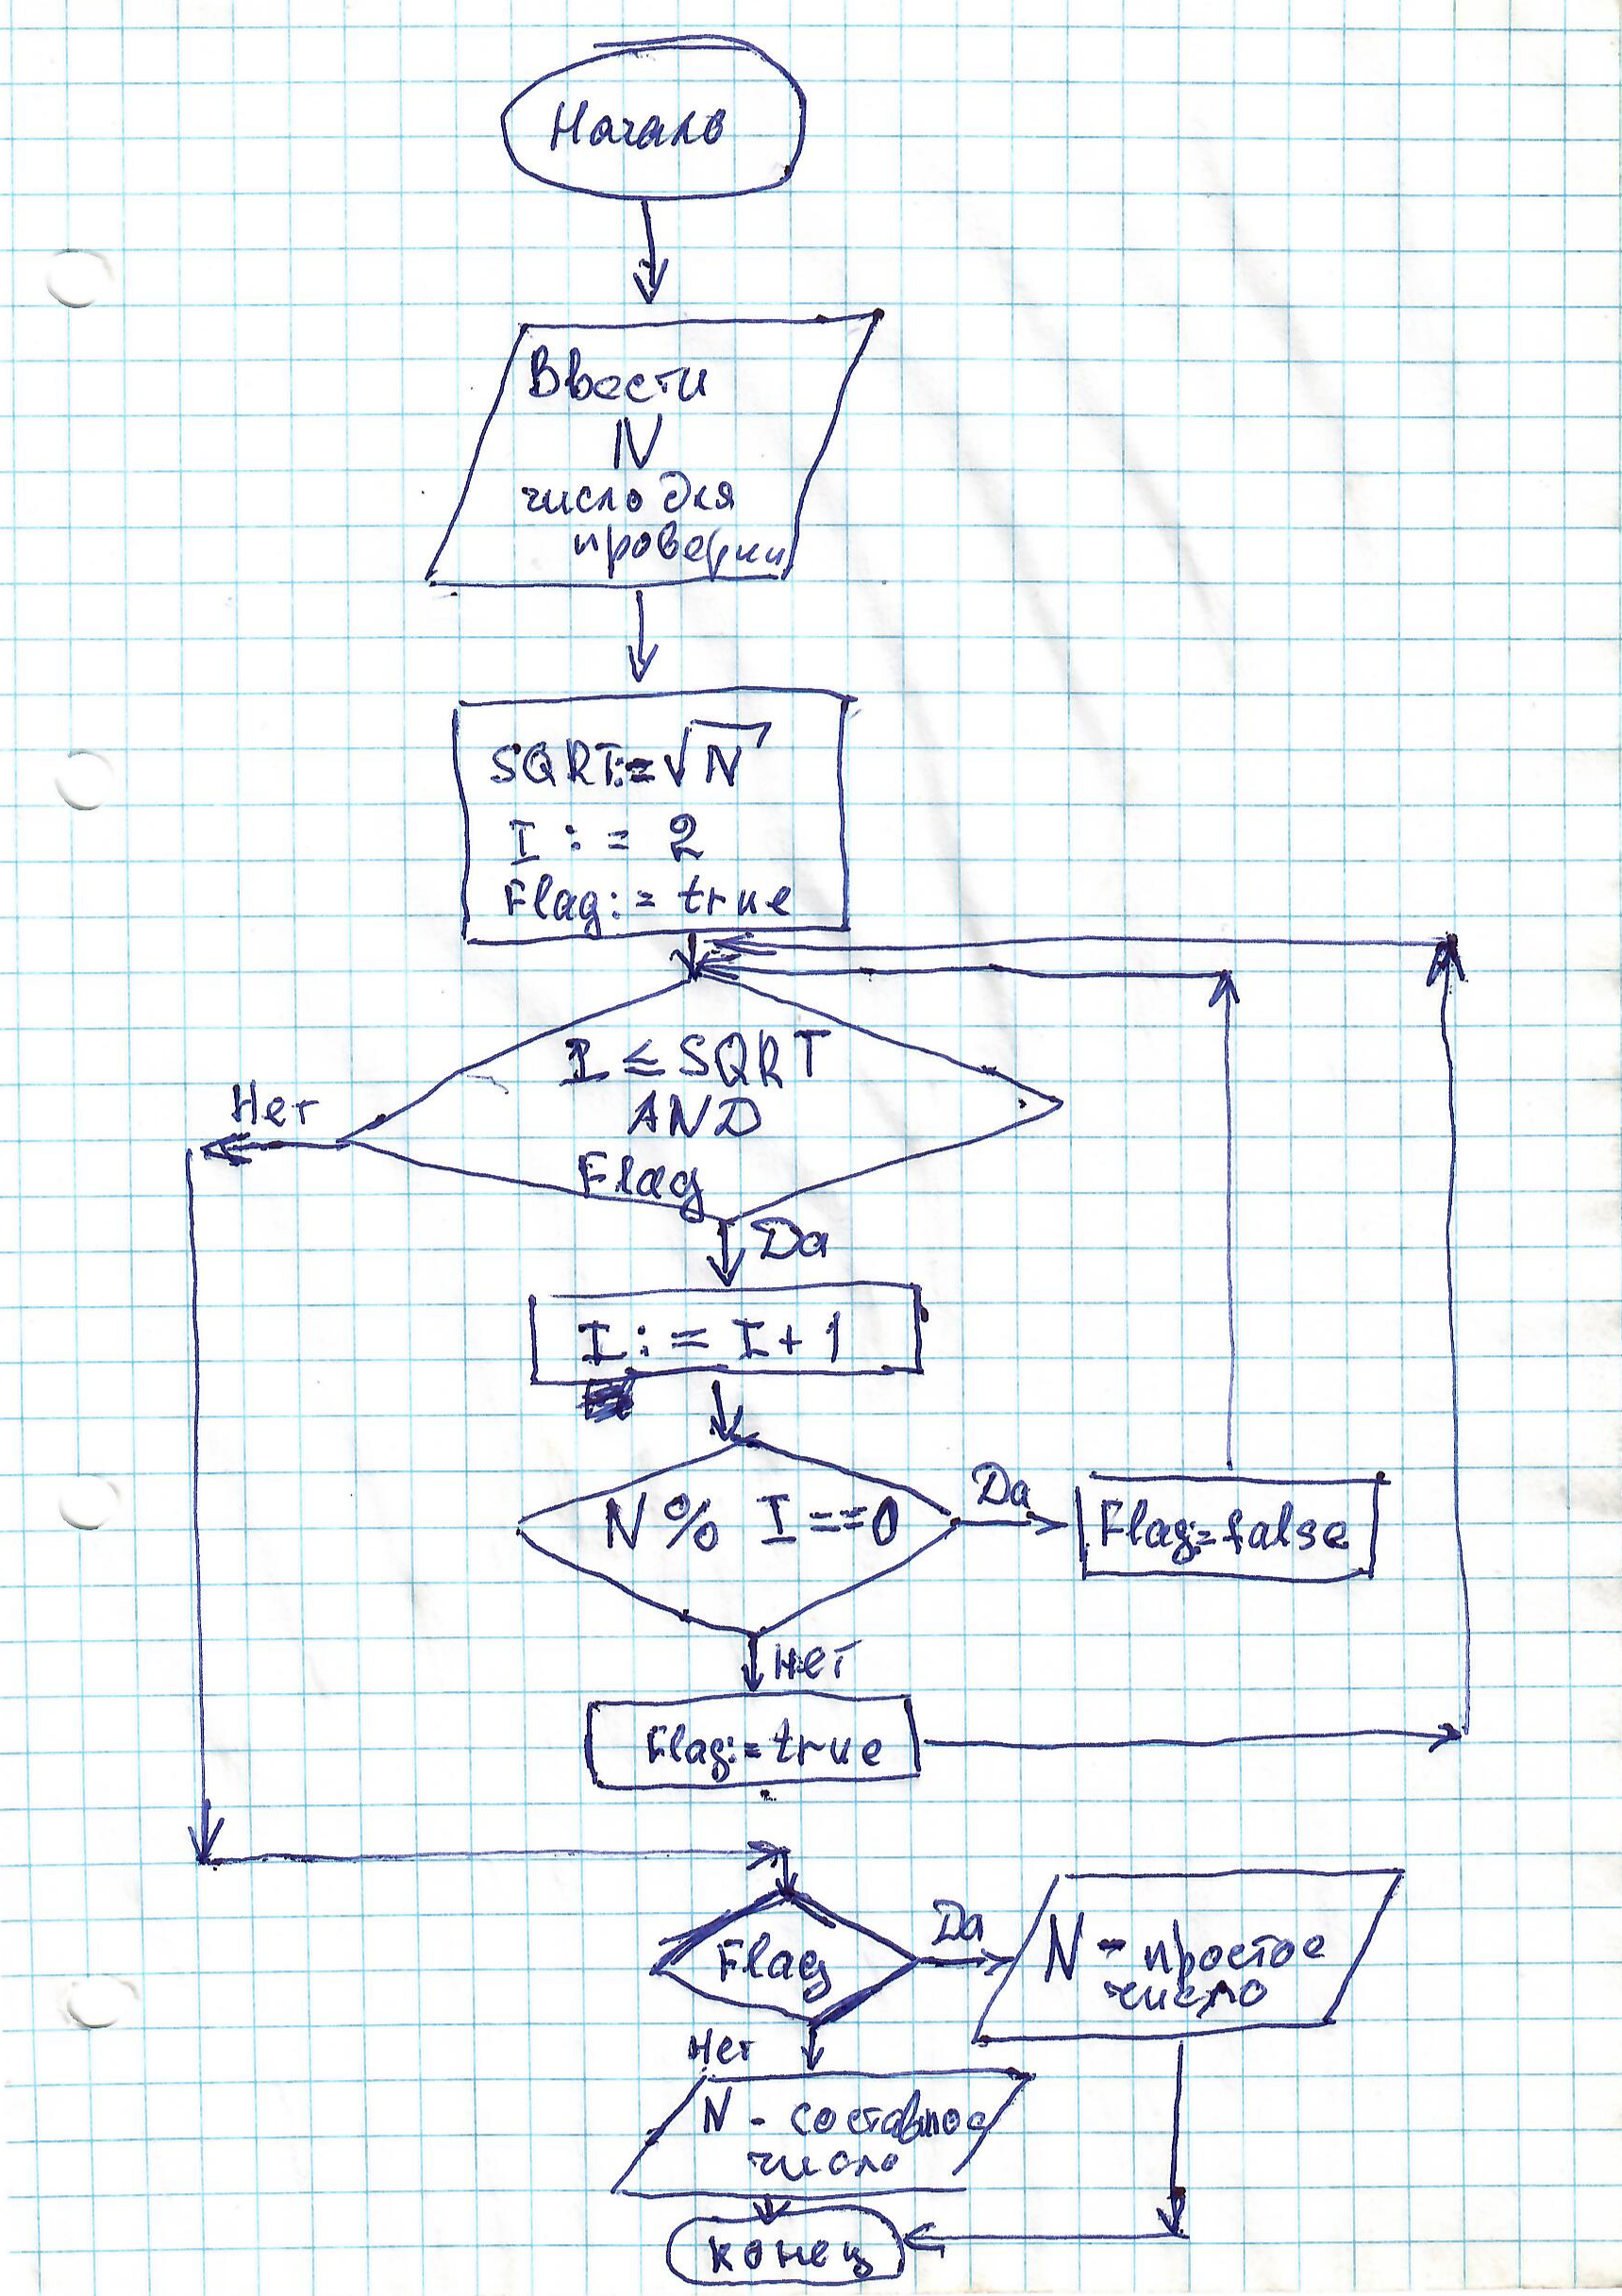 Начало
Ввести
N
число для
проверки
SQRT:=√N
I := 2
Flag:= true
I ≤ SQRT
AND
Flag
Нет
Да
I := I+1
N % I ==0
Да
Flag:=false
Нет
Flag:= true
Flag
Да
N - простое
число
Нет
N - составное
число
конец